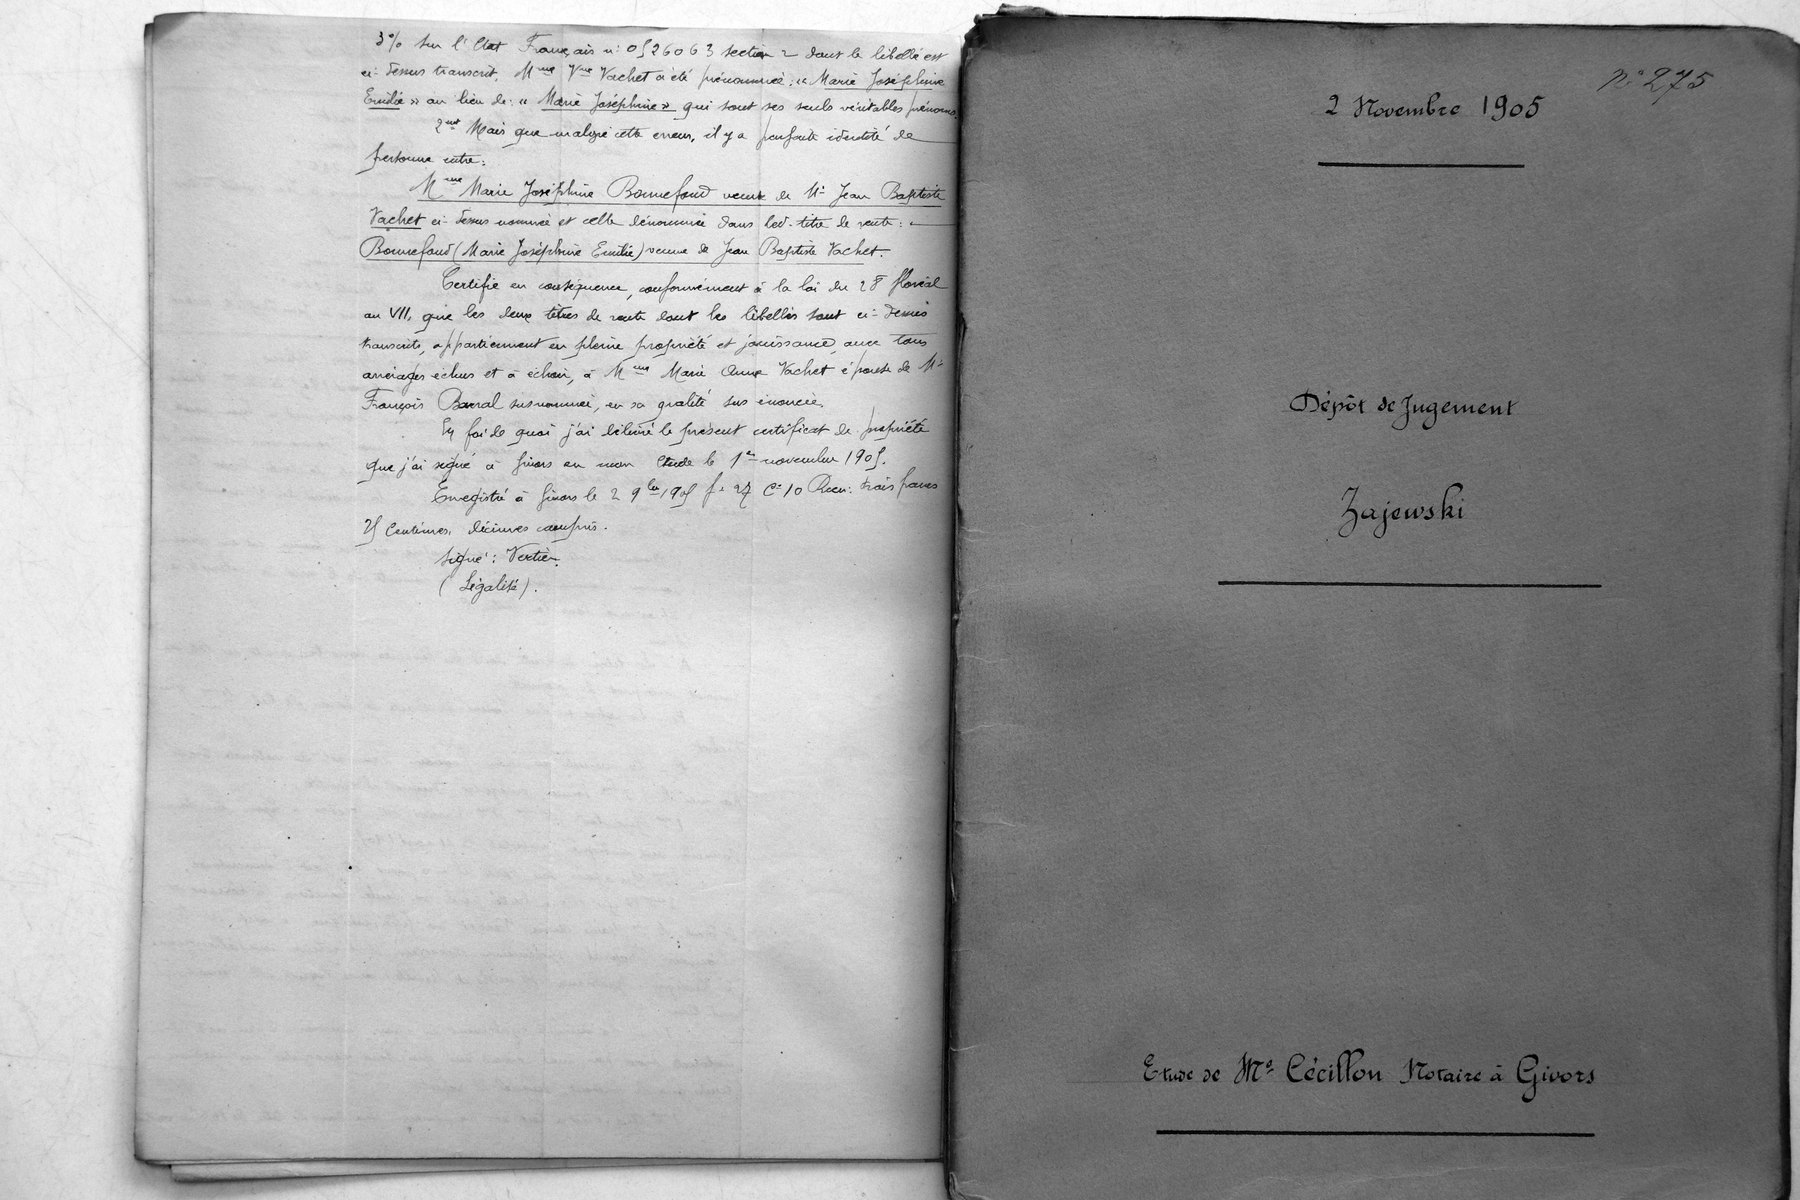 3% sur l'Etat Français n: 0526063 section 2 dont le libellé est
ci-dessus transcrit, Mme Vve Vachet a été prénommée: « Marie Joséphine
Emilie » au lieu de: « Marie Joséphine » qui sont ses seuls véritables prénoms.
2ent Mais que malgré cette erreur, il y a parfaite identité de
personne entre:
Mme Marie Joséphine Bonnefond veuve de Mr Jean Baptiste
Vachet ci-dessus nommée et celle dénommée dans led. titre de rente:
Bonnefond (Marie Joséphine Emilie) veuve de Jean Baptiste Vachet.
Certifie en conséquence, conformément à la loi du 28 floréal
an VII, que les deux titres de rente dont les libellés sont ci-dessus
transcrits, appartiennent en pleine propriété et jouissance, avec tous
arrérages échus et à échoir, à Mme Marie Anne Vachet épouse de Mr
François Barral susnommée, en sa qualité sus énoncée.
En foi de quoi j'ai délivré le présent certificat de propriété
que j'ai signé à Givors en mon Etude le 1er novembre 1905.
Enregistré à Givors le 2 9bre 1905 f° 27 C. 10 Reçu: trois francs
75 Centimes, décimes compris.
Signé: Vertier.
(Légalité).
n° 275
2 Novembre 1905
Dépôt de Jugement
Zajewski
Etude de Me Cécillon Notaire à Givors